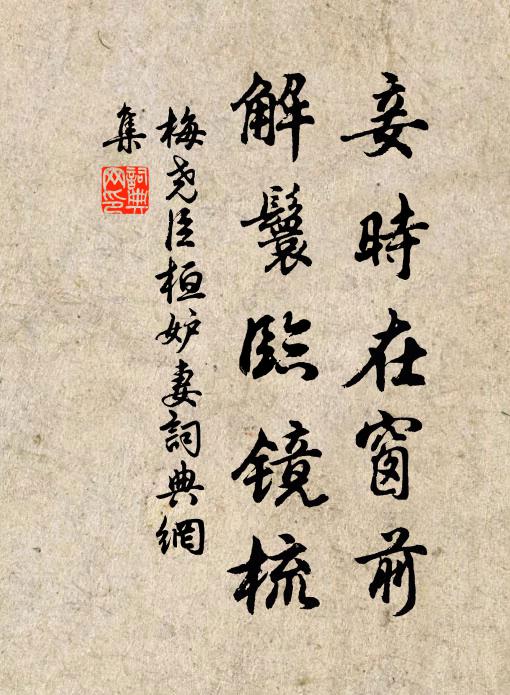 妾時在窗前
解鬟臨镜梳
梅尧臣桓妒妻詞典網
集
詞典网印